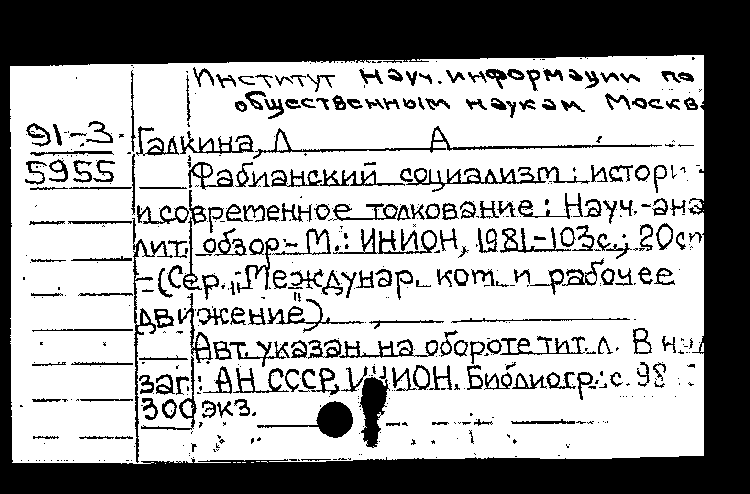 Институт Науч. информации по
общественным наукам Москва
91-3 Галкина, Л А
5955 Фабианский социализм: истори
и современное толкование: Науч.-ана
лит. обзор.- М.: ИНИОН, 1981.-103с.; 20см
-(Сер. „Междунар. ком. и рабочее
движение").
Авт. указан. на обороте тит. л. В над
заг.: АН СССР, ИНИОН. Библиогр.: с. 98
300 экз.